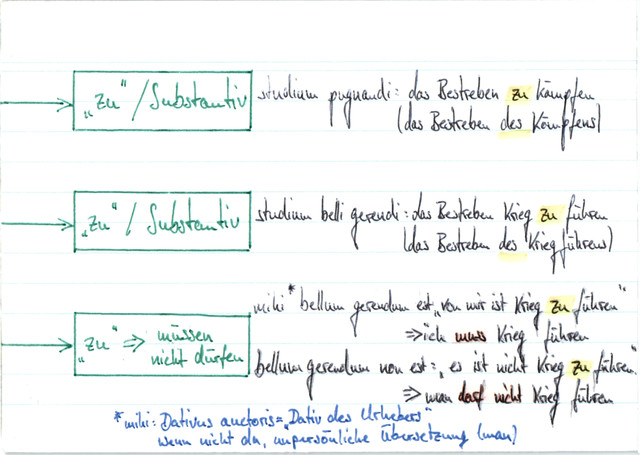 „zu“ / Substantiv
studium pugnandi: das Bestreben zu kämpfen
(das Bestreben des Kämpfens)
„zu“ / Substantiv
studium belli gerendi: das Bestreben Krieg zu führen
(das Bestreben des Kriegführens)
„zu“ ⇒ müssen
nicht dürfen
mihi* bellum gerendum est „von mir ist Krieg zu führen“
⇒ ich muss Krieg führen
bellum gerendum non est: „es ist nicht Krieg zu führen“
⇒ man darf nicht Krieg führen
*mihi: Dativus auctoris = „Dativ des Urhebers“
wenn nicht da, unpersönliche Übersetzung (man)